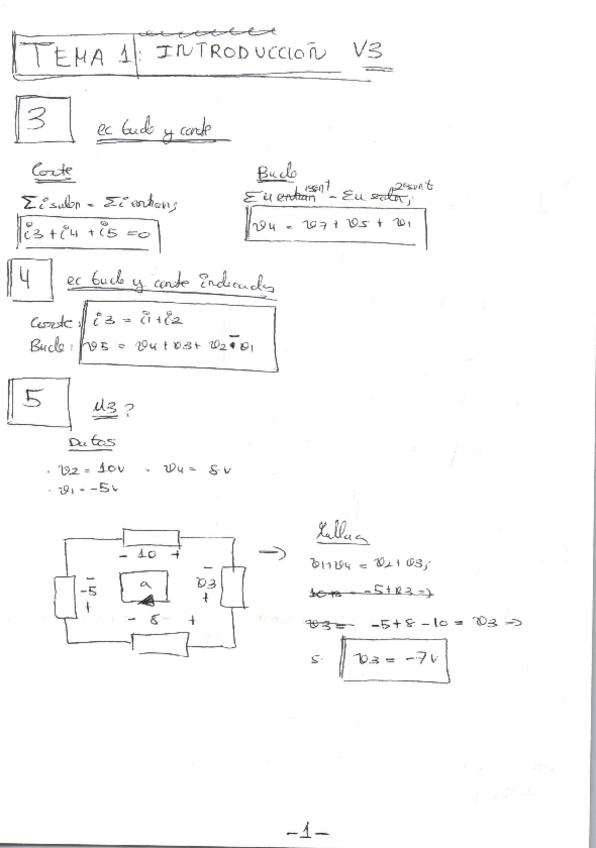 TEMA 1: INTRODUCCIÓN V3
3
ec bucle y corte
Corte
Σi salen = Σi entran;
i3 + i4 + i5 = 0
Bucle
v4 = v7 + v5 + v1
4
ec bucle y corte indicados
Corte: i3 = i1 + i2
Bucle: v5 = v4 + v3 + v2 - v1
5
U3?
Datos
· v2 = 10V · v4 = 8V
· v1 = -5V
- 10 +
- -5 +
a
- v3 +
- 8 +
Malla a
v1+v4 = v2+v3;
-5+v3 =>
v3 = -5+8-10 = v3 =>
v3 = -7V
-1-